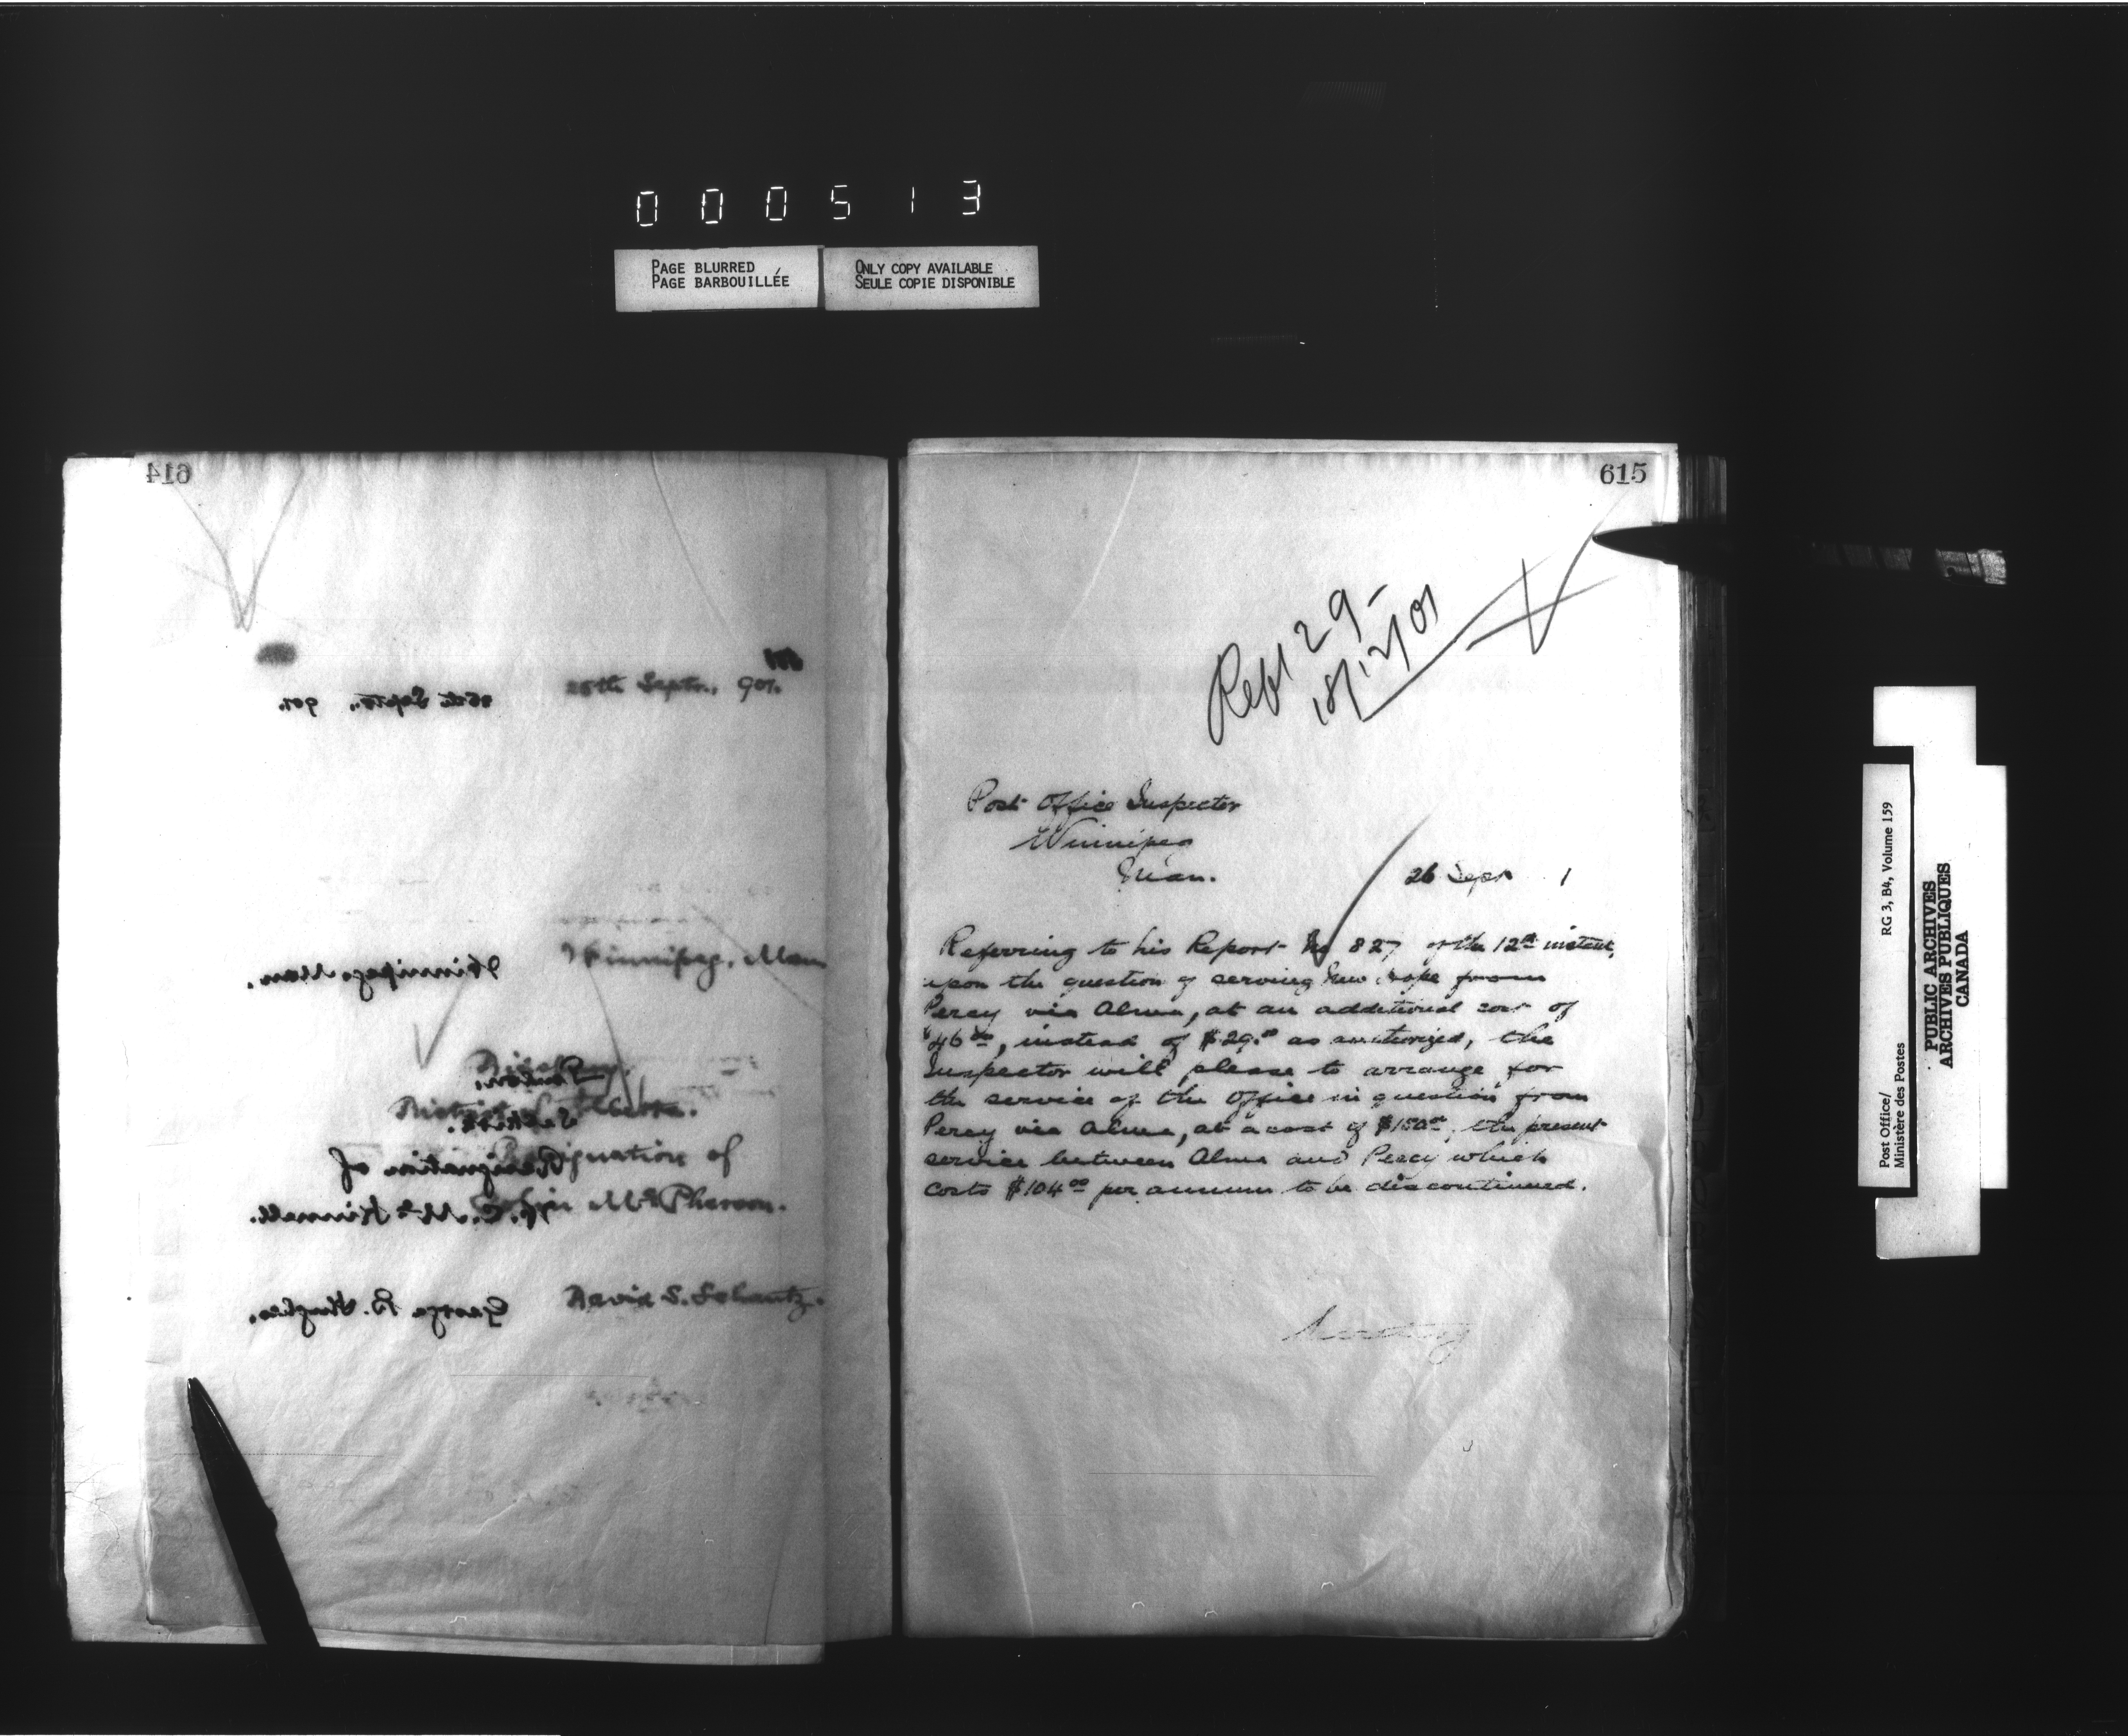 000513
PAGE BLURRED
PAGE BARBOUILLÉE
ONLY COPY AVAILABLE
SEULE COPIE DISPONIBLE
614
25th Septr., 901.
Winnipeg, Man
Resignation of
McPherson.
David S. Schantz.
26th Septr., 901.
Winnipeg Man.
Resignation of
George B. Hughes.
615
Rept 29-
18/12/01
Post Office Inspector
Winnipeg
Man.
26 Sept 1
Referring to his Report No 827 of the 12th instant,
upon the question of serving New Hope from
Percy via Alma, at an additional cost of
$46.00, instead of $29.00 as authorized, the
Inspector will please to arrange for
the service of the Office in question from
Percy via Alma, at a cost of $150.00, the present
service between Alma and Percy which
costs $104.00 per annum to be discontinued.
Post Office/
Ministère des Postes
RG 3, B4, Volume 159
PUBLIC ARCHIVES
ARCHIVES PUBLIQUES
CANADA